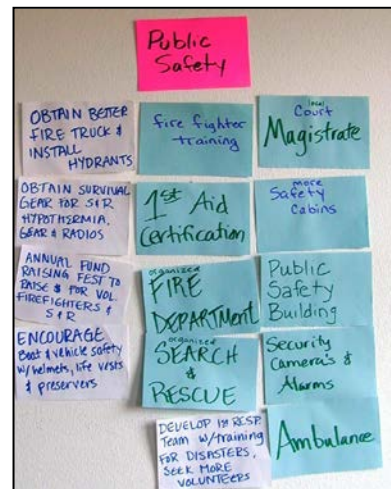 Public
Safety
OBTAIN BETTER
FIRE TRUCK &
INSTALL
HYDRANTS
OBTAIN SURVIVAL
GEAR FOR S&R
HYPOTHERMIA
GEAR & RADIOS
ANNUAL FUND
RAISING FEST TO
RAISE $ FOR VOL.
FIREFIGHTERS &
S&R
ENCOURAGE
Boat & vehicle safety
w/helmets, life vests
& preservers
fire fighter
training
1st Aid
Certification
organized
FIRE
DEPARTMENT
organized
SEARCH
&
RESCUE
DEVELOP 1st RESP.
Team w/training
FOR DISASTERS,
SEEK MORE
VOLUNTEERS
local
Court
Magistrate
more
Safety
Cabins
Public
Safety
Building
Security
Camera's &
Alarms
Ambulance